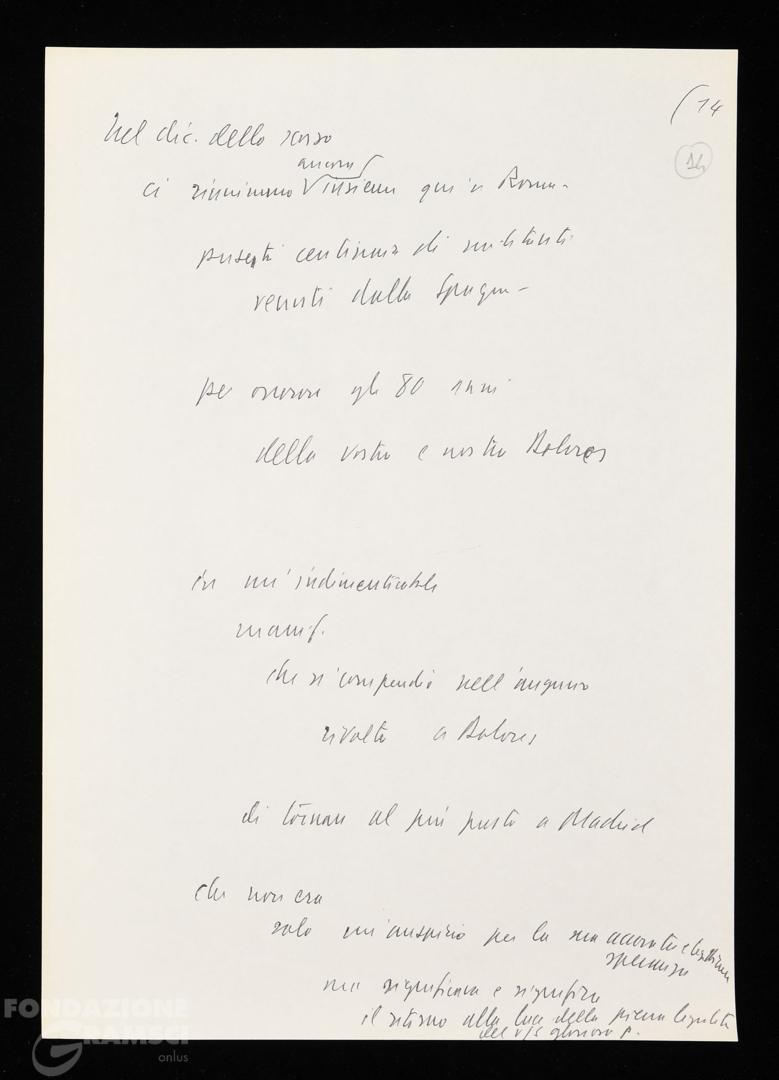 (14
14
Nel dic. dello scorso
ancora
ci riunimmo V insieme qui a Roma -
presenti centinaia di militanti
venuti dalla Spagna -
per onorare gli 80 anni
della vostra e nostra Dolores
in un'indimenticabile
manif.
che si compendiò nell'augurio
rivolto a Dolores
di tornare al più presto a Madrid
che non era
solo un'auspicio per la sua accorata e legittima
speranza
ma significava e significa
il ritorno alla luce della piena legalità
del v/s glorioso p.
FONDAZIONE
GRAMSCI
onlus